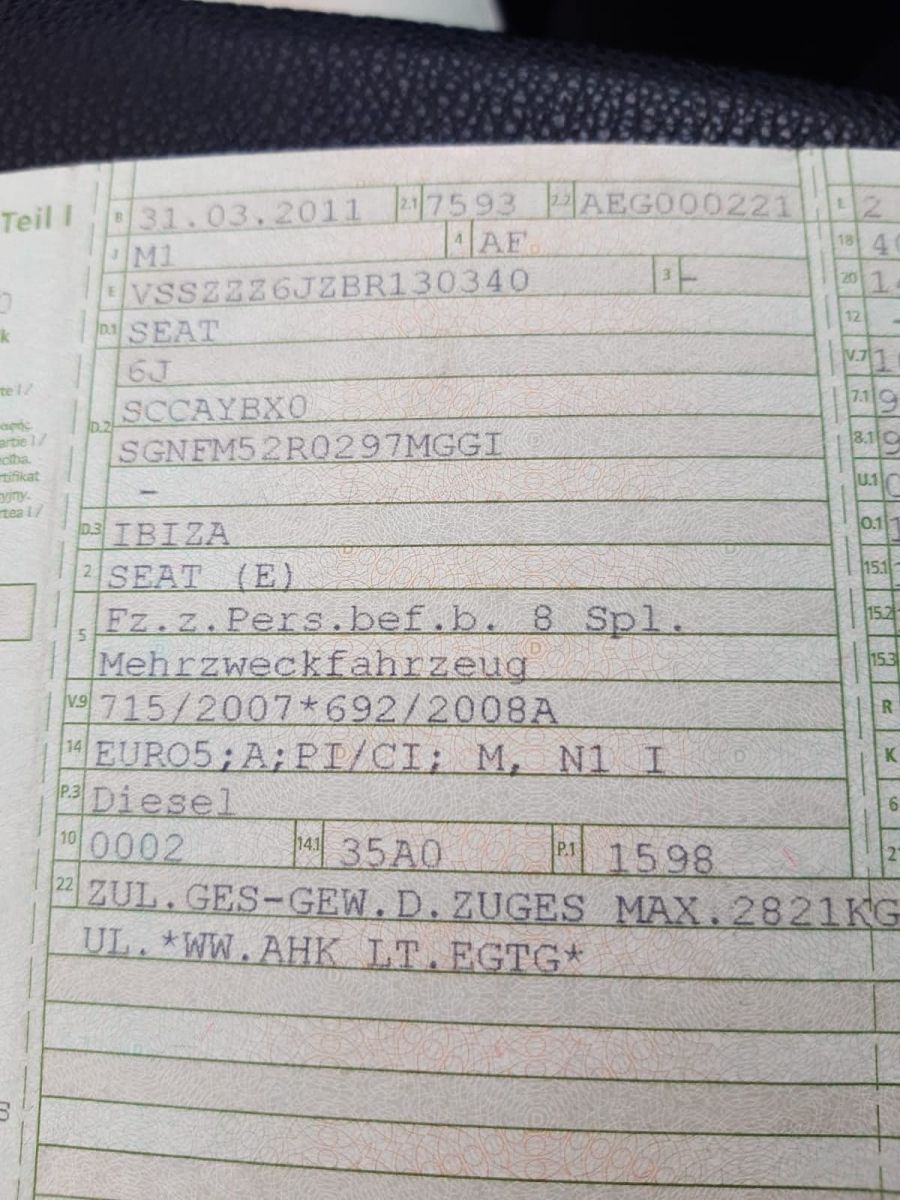 Teil I
B 31.03.2011 2.1 7593 2.2 AEG000221 L 2
J M1 4 AF 18
E VSSZZZ6JZBR130340 3 - 20
D.1 SEAT 12
6J V.7
D.2 SCCAYBX0 7.1 9
SGNFM52R0297MGGI 8.1 9
- U.1
D.3 IBIZA O.1
2 SEAT (E) 15.1
5 Fz.z.Pers.bef.b. 8 Spl. 15.2
Mehrzweckfahrzeug 15.3
V.9 715/2007*692/2008A R
14 EURO5;A;PI/CI; M, N1 I K
P.3 Diesel 6
10 0002 14.1 35A0 P.1 1598
22 ZUL.GES-GEW.D.ZUGES MAX.2821KG
UL.*WW.AHK LT.EGTG*